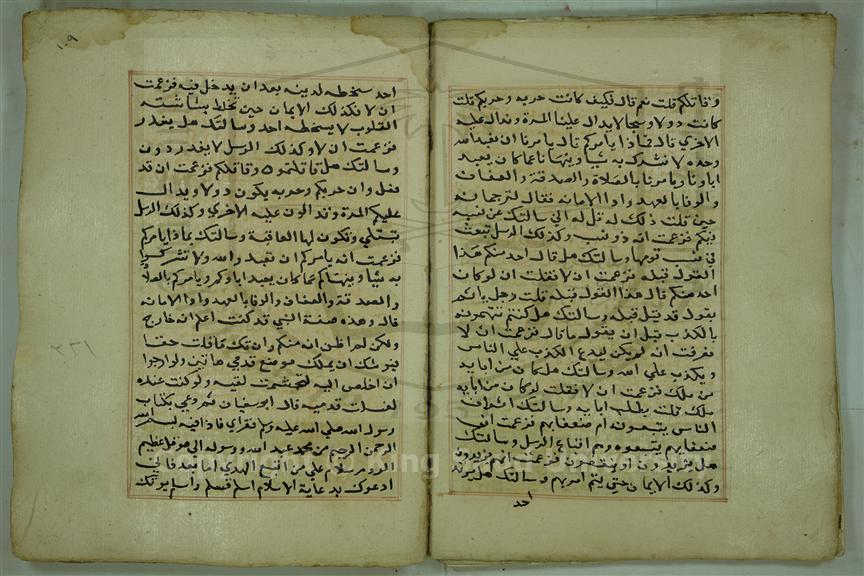 وقاتلكم قلت نعم قال فكيف كانت حربه وحربكم قلت
كانت دولا وسجالا يدال علينا المرة وندال عليه
الاخري قال فماذا يامركم قال يامرنا ان نعبد الله
وحده لا نشرك به شيا وينهانا عما كان يعبد
اباونا ويامرنا بالصلاة والصدقة والعفاف
والوفا بالعهد وادا الامانه فقال لترجمانه
حين قلت ذلك له قل له اني سالتك عن نسبه
فيكم فزعمت انه ذو نسب وكذلك الرسل تبعث
في نسب قومها وسالتك هل قال احد منكم هذا
القول قبله فزعمت ان لا فقلت ان لو كان
احد منكم قال هذا القول قبله قلت رجل ياتم
بقول قد قيل قبله وسالتك هل كنتم تتهمونه
بالكذب قبل ان يقول ما قال فزعمت ان لا
فعرفت انه لم يكن ليدع الكذب علي الناس
ويكذب علي الله وسالتك هل كان من ابايه
من ملك فزعمت ان لا فقلت لو كان من ابايه
ملك قلت يطلب ابايه وسالتك اشراف
الناس يتبعونه ام ضعفايهم فزعمت ان
ضعفايهم يتبعوه وهم اتباع الرسل وسالتك
هل يزيدون او ينقصون فزعمت انهم يزيدون
وكذلك الايمان حتي يتم امرهم وسالتك هل يرتد
احد
١٠٩
احد سخطه لدينه بعد ان يدخل فيه فزعمت
ان لا فكذلك الايمان حين تخلط بشاشته
القلوب لا يسخطه احد وسالتك هل يغدر
فزعمت ان لا وكذلك الرسل لا يغدرون
وسالتك هل قاتلتموه وقاتلكم فزعمت ان قد
فعل وان حربكم وحربه يكون دولا ويدال
عليكم المرة وتدالون عليه الاخري وكذلك الرسل
تبتلي وتكون لها العاقبة وسالتك بماذا يامركم
فزعمت انه يامركم ان تعبدوا الله ولا تشركوا
به شيا وينهاكم عما كان يعبد اباوكم ويامركم بالصلاة
والصدقة والعفاف والوفا بالعهد وادا الامانه
قال وهذه صفة النبي قد كنت اعلم انه خارج
ولكن لم اظن انه منكم وان تك كما قلت حقا
فيوشك ان يملك موضع قدمي هاتين ولو ارجوا
ان اخلص اليه لتجشمت لقيه ولو كنت عنده
لغسلت قدميه قال ابو سفيان ثم دعي بكتاب
رسول الله صلي الله عليه وسلم فقراي فاذا فيه بسم الله
الرحمن الرحيم من محمد عبد الله ورسوله الي هرقل عظيم
الروم سلام علي من اتبع الهدي اما بعد فاني
ادعوك بدعاية الاسلام اسلم تسلم واسلم يوتك
٢٣٦